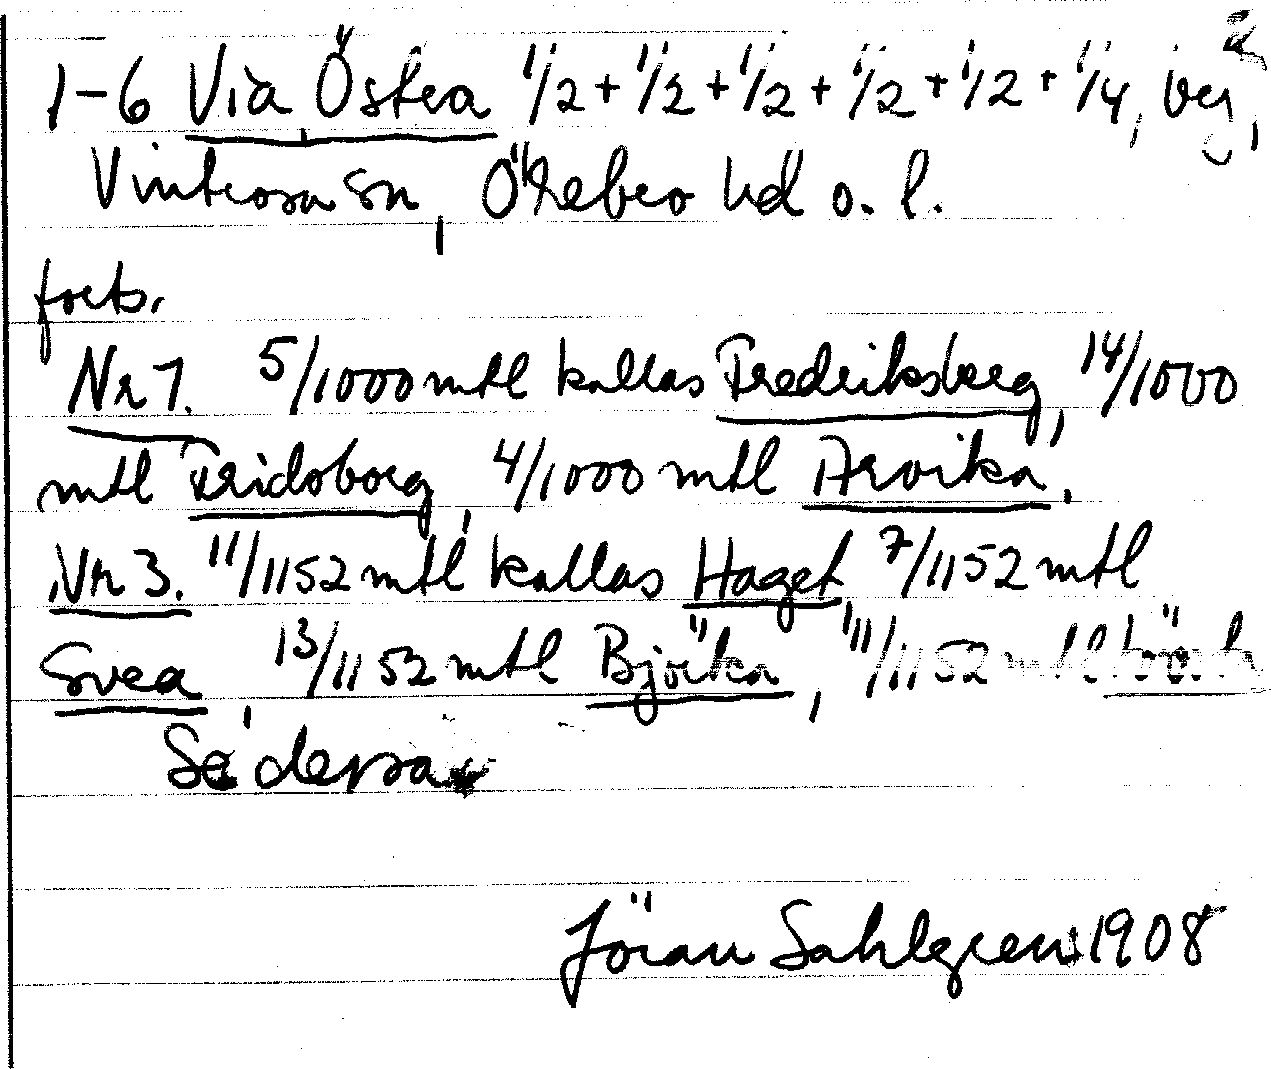 1-6 Via Östra 1/2 + 1/2 + 1/2 + 1/2 + 1/2 + 1/4, by, 2
Vintrosa sn, Örebro hd o. l.
forts.
Nr 1. 5/1000 mtl kallas Fredriksberg, 14/1000
mtl Fridoborg, 4/1000 mtl Arvika.
Nr 3. 11/1152 mtl kallas Haget 7/1152 mtl
Svea, 13/1152 mtl Björka, 11/1152 mtl
Jöran Sahlgren 1908